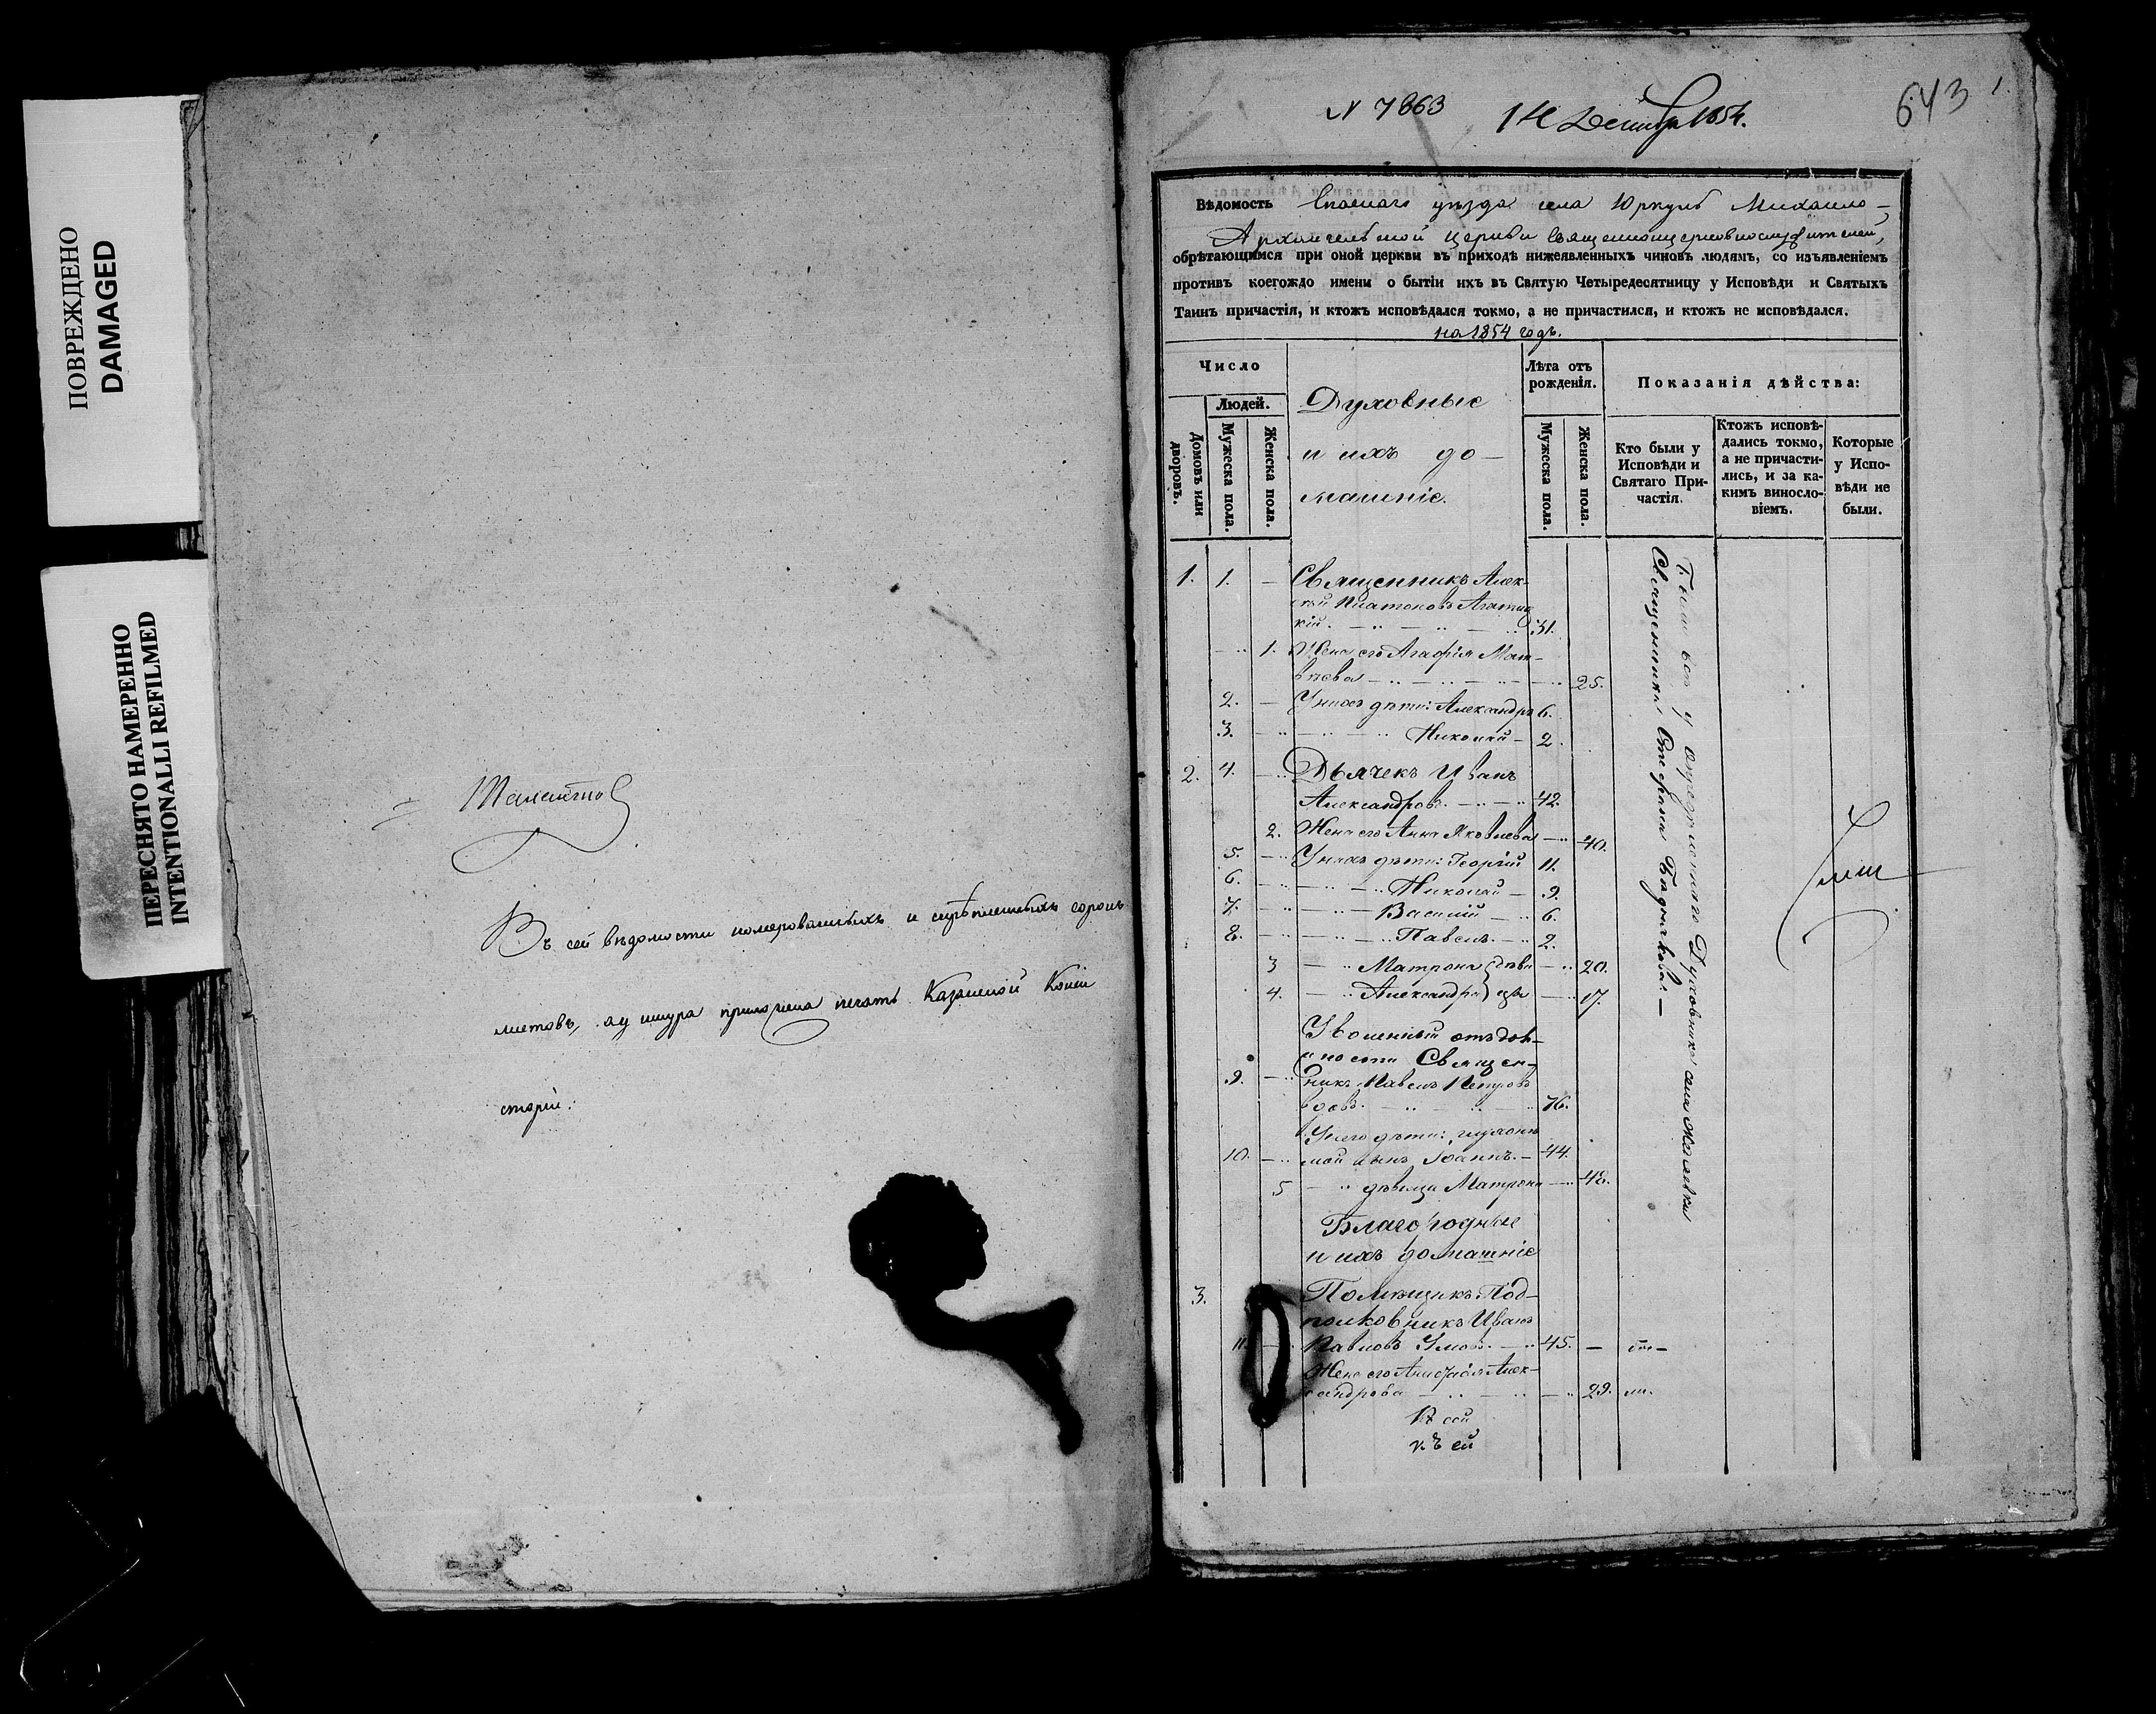 ПОВРЕЖДЕНО
DAMAGED
ПЕРЕСНЯТО НАМЕРЕННО
INTENTIONALLI REFILMED
Въ сей вѣдомости номерованныхъ и скрѣпленныхъ сорокъ
листовъ, а у шнура приложена печать Казанской Конси
сторіи.
N 7863
14 Декабря 1854.
643
1.
Вѣдомость Спаскаго уѣзда села Юркуль Михаило-
Архангельской церкви священноцерковнослужителей,
обрѣтающимся при оной церкви въ приходѣ нижеявленныхъ чиновъ людямъ, со изъявленіемъ
противъ коегождо имени о бытіи ихъ въ Святую Четыредесятницу у Исповѣди и Святыхъ
Таинъ причастія, и ктожъ исповѣдался токмо, а не причастился, и ктожъ не исповѣдался.
на 1854 годъ.
Число
Людей.
Домовъ или дворовъ.
Мужеска пола.
Женска пола.
Духовные
и ихъ до-
машніе.
Лѣта отъ
рожденія.
Мужеска пола.
Женска пола.
Показанія дѣйства:
Кто были у
Исповѣди и
Святаго При-
частія.
Ктожъ исповѣ-
дались токмо,
а не причасти-
лись, и за ка-
кимъ винослo-
віемъ.
Которые
у Испо-
вѣди не
были.
1. 1. — Священникъ Алек-
сѣй Платоновъ
кій. 31.
1. Жена его Агафія Мат-
вѣева 25.
2. — У нихъ дѣти: Александръ 6.
3. Николай 2.
2. 4. Дьячекъ Иванъ
Александровъ. 42.
2. Жена его Анна Яковлева 40.
5. У нихъ дѣти: Георгій 11.
6. Николай 9.
7. Василій 6.
8. Павелъ. 2.
3 Матрона дѣви 20.
4. Александра цы 17.
Уволенный отъ дол-
жности Священ-
9. никъ Павелъ Петровъ
вдовъ. 76.
У него дѣти: глухонѣ
10. мой сынъ Іоаннъ. 44.
5 дѣвица Матрона 48.
Были всѣ у опредѣленнаго Духовника села
Священника Стефана
Благородные
и ихъ домашніе
3. Помѣщикъ Под-
полковникъ Иванъ
11. Павловъ Умовъ. 45. — бы-
Жена его Алек-
сандрова 29. ли.